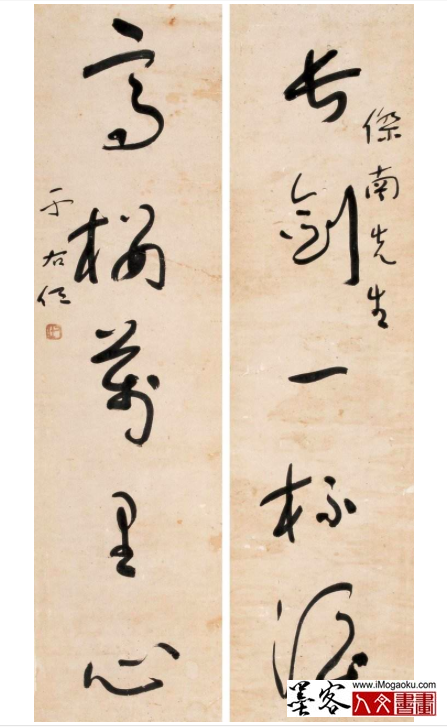 傑南先生
長劍一杯酒
高樓萬里心
于右任
www.iMogaoku.com
墨客